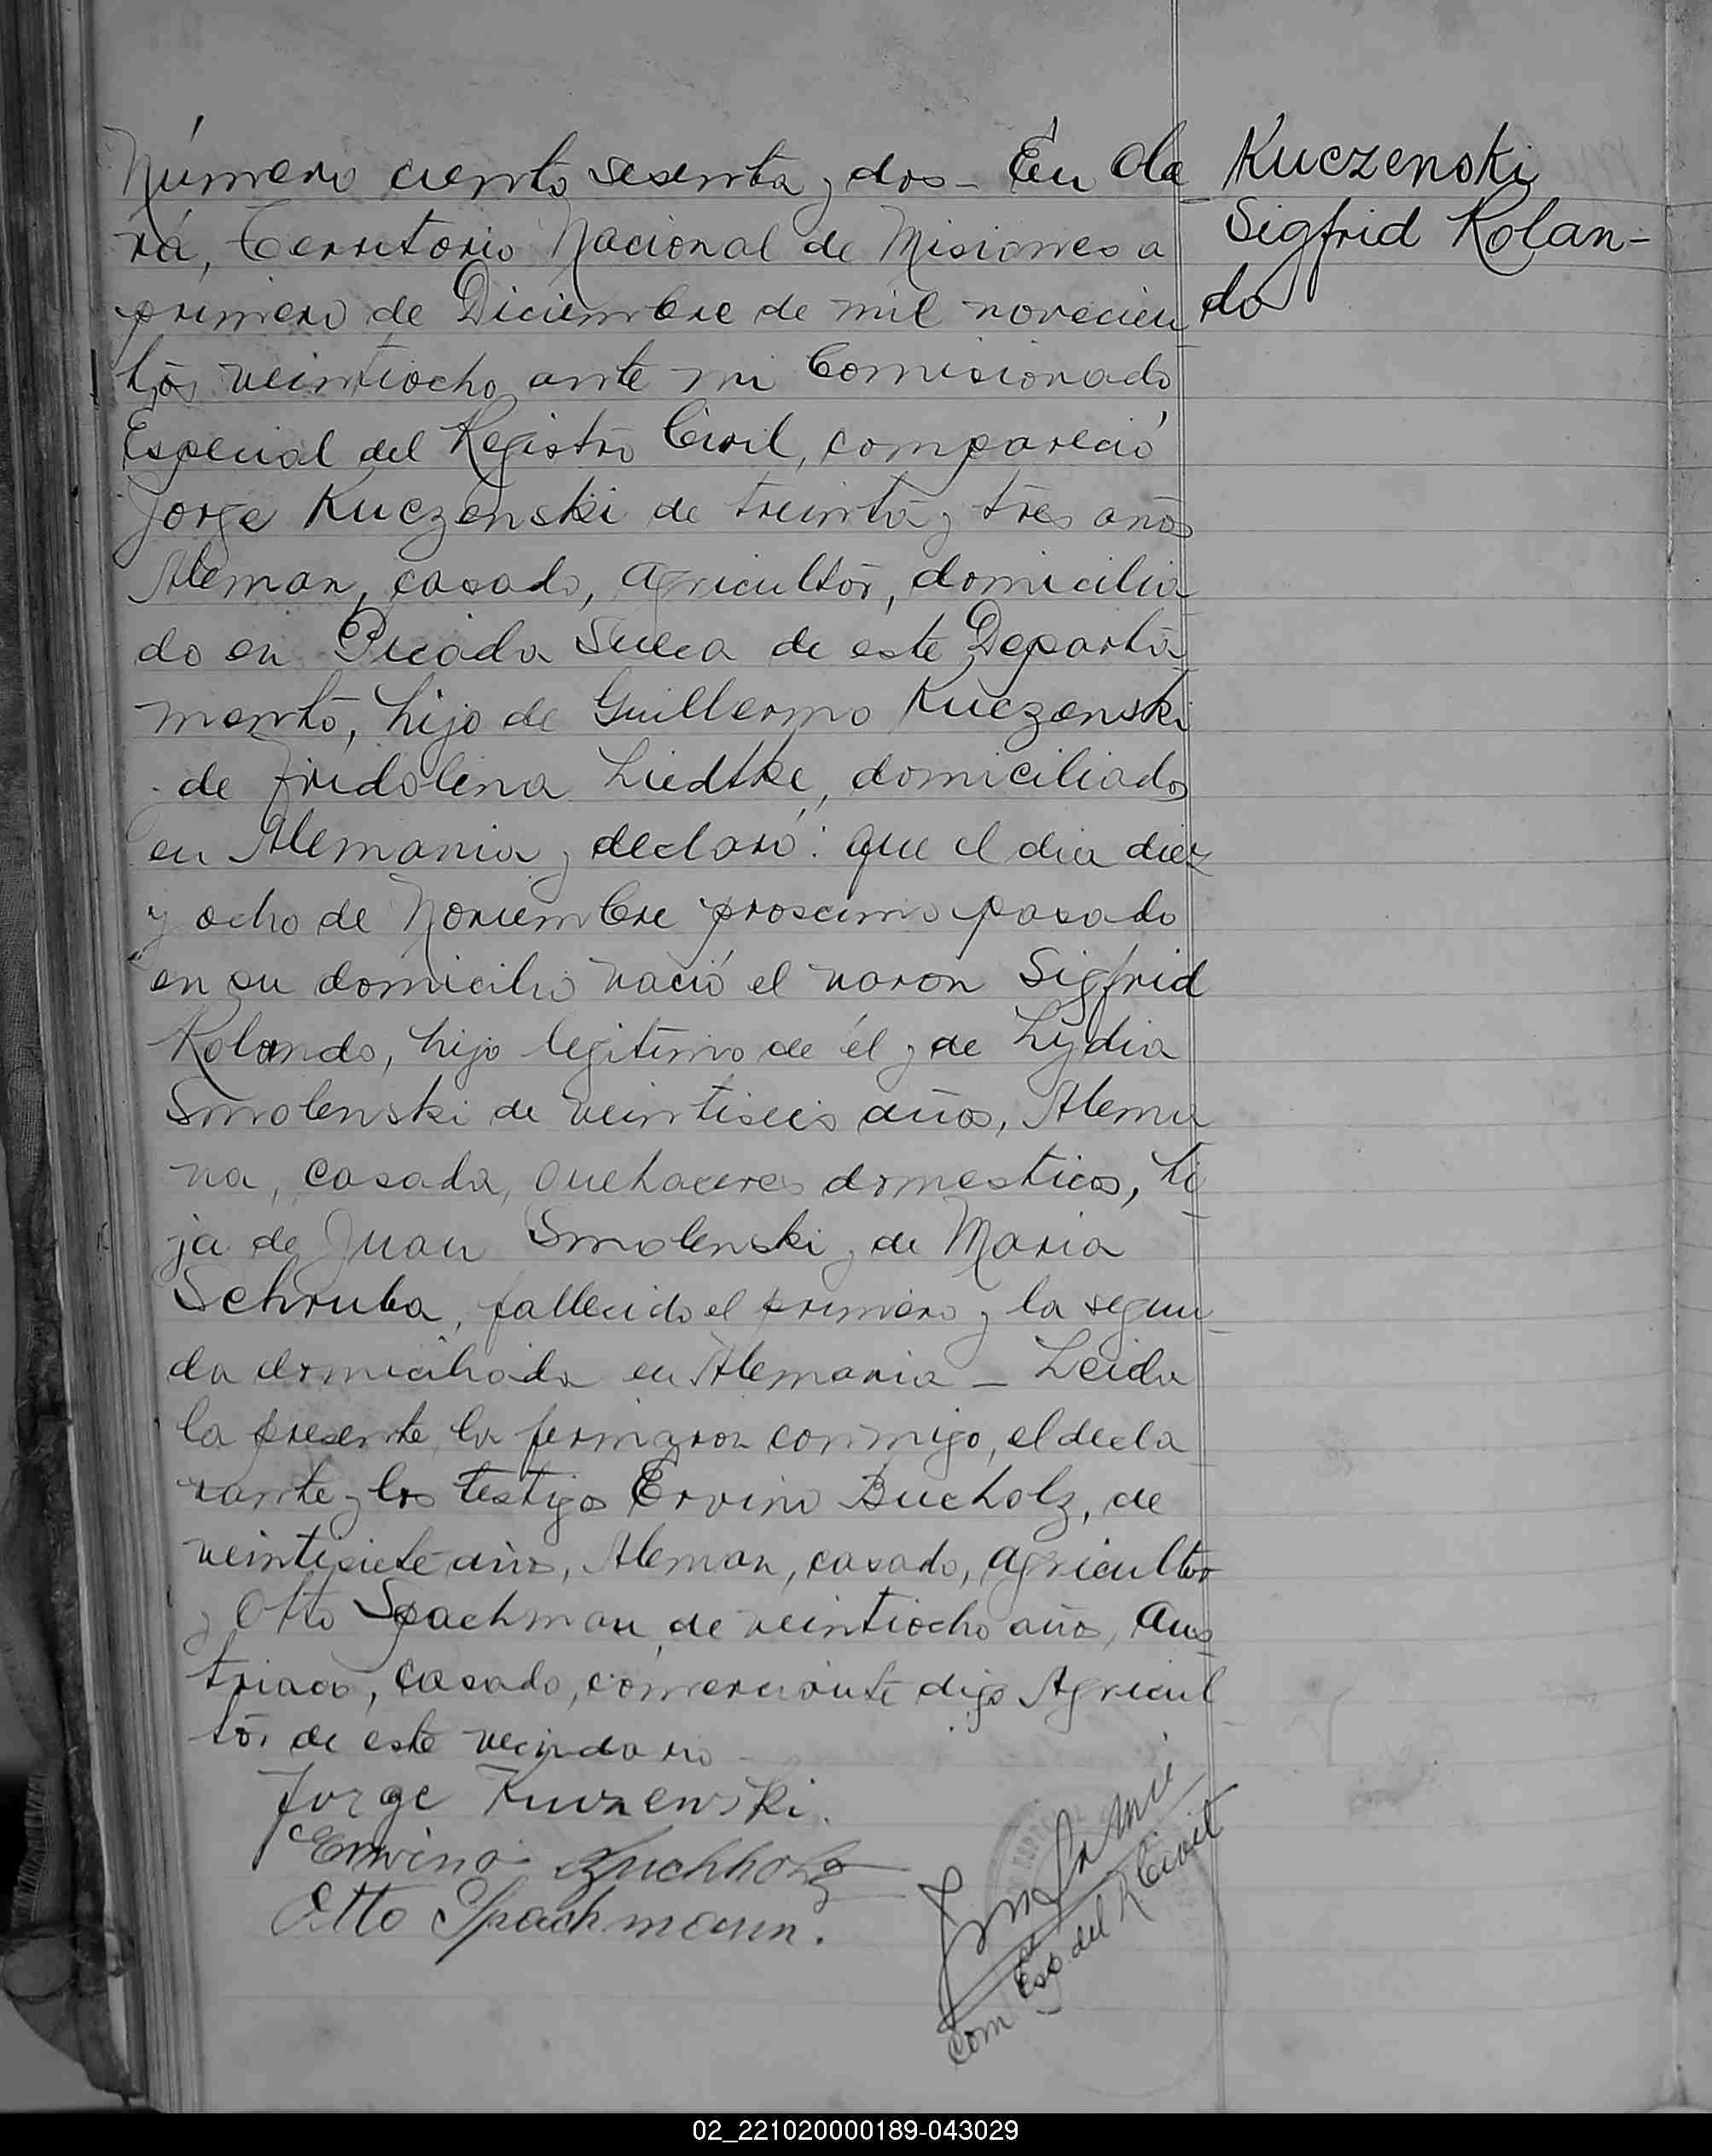 Número ciento sesenta y dos - En Ole
rá, Territorio Nacional de Misiones a
primero de Diciembre de mil novecien
tos veintiocho ante mi Comisionado
Especial del Registro Civil, compareció
Jorge Kuczenski de treinta y tres años
Aleman, casado, agricultor, domicilia
do en Picada Sueca de este Departa
mento, hijo de Guillermo Kuczenski
de Fridolina Liedtke, domiciliados
en Alemania y declaró: que el dia diez
y ocho de Noviembre proscimo pasado
en su domicilio nació el varon Sigfrid
Rolando, hijo legitimo de él y de Lydia
Smolenski de veintiseis años, Alema
na, casada, quehaceres domesticos, hi
ja de Juan Smolenski y de Maria
Schruba, fallecido el primero y la segun
da domiciliada en Alemania - Leida
la presente la firmaron conmigo, el decla
rante y los testigos Ervino Bucholz, de
veintisiete años, Aleman, casado, agricultor
y Otto Spachman de veintiocho años, Aus
triaco, casado, comerciante digo Agricul
tor de este vecindario
Jorge Kuczenski.
Erwino Buchholz
Otto Spachmann.
Com Esp. del R Civil
Kuczenski
Sigfrid Rolan-
do
02_221020000189-043029